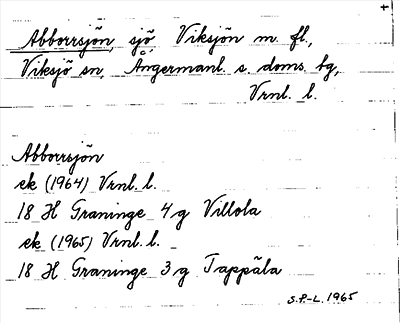 +
Abborrsjön, sjö, Viksjön m. fl.,
Viksjö sn, Ångermanl. s. doms. tg,
Vrnl. l.
Abborrsjön
ek (1964) Vrnl. l.
18 H Graninge 4 g Villola
ek (1965) Vrnl. l.
18 H Graninge 3 g Tappäla
S.P-L. 1965